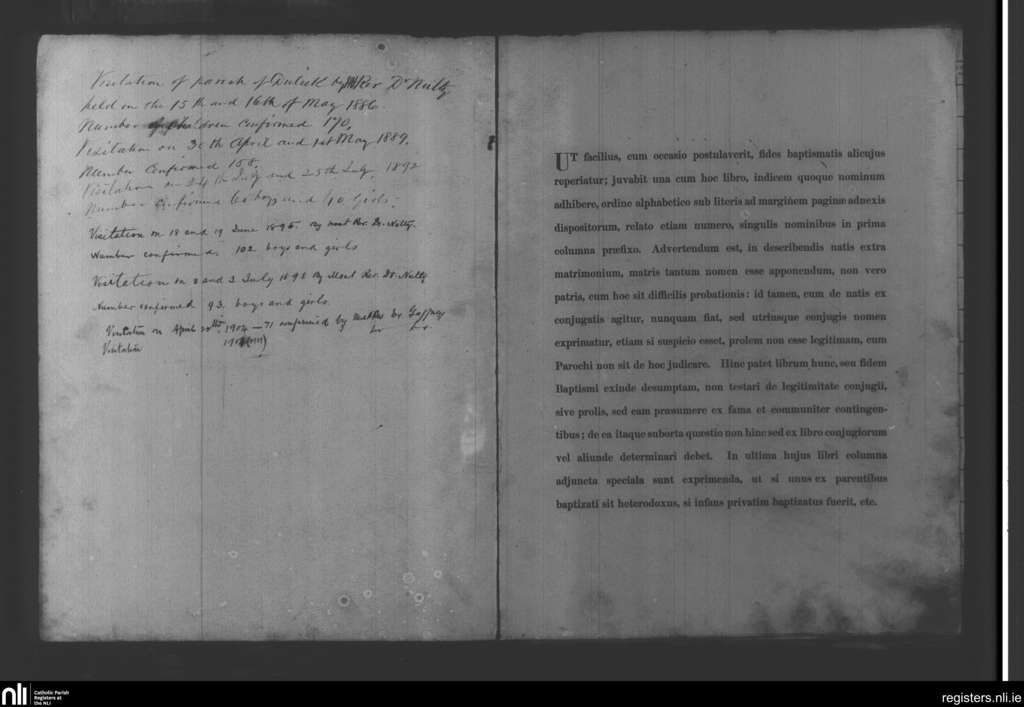 Visitation of parish of Duleek by Rev Dr Nulty
held on the 15th and 16th of May 1886
Number of children Confirmed 170.
Visitation on 30th April and 1st May 1889.
Number Confirmed 158.
Visitation on 24th July and 25th July 1892
Number Confirmed boys and girls.
Visitation on 18 and 19 June 1895. By most Rev. Dr. Nulty.
Number confirmed: 102 boys and girls
Visitation on 2 and 3 July 1898 By Most Rev. Dr Nulty
Number confirmed 93. boys and girls.
Visitation on April 1904 — 71 confirmed by Most Rev Dr Gaffney
Visitation
UT facilius, cum occasio postulaverit, fides baptismatis alicujus
reperiatur; juvabit una cum hoc libro, indicem quoque nominum
adhibero, ordine alphabetico sub literis ad marginem paginæ adnexis
dispositorum, relato etiam numero, singulis nominibus in prima
columna præfixo. Advertendum est, in describendis natis extra
matrimonium, matris tantum nomen esse apponendum, non vero
patris, cum hoc sit difficilis probationis: id tamen, cum de natis ex
conjugatis agitur, nunquam fiat, sed utriusque conjugis nomen
exprimatur, etiam si suspicio esset, prolem non esse legitimam, cum
Parochi non sit de hoc judicare. Hinc patet librum hunc, seu fidem
Baptismi exinde desumptam, non testari de legitimitate conjugii,
sive prolis, sed eam præsumere ex fama et communiter contingen-
tibus; de ea itaque suborta quæstio non hinc sed ex libro conjugiorum
vel aliunde determinari debet. In ultima hujus libri columna
adjuncta speciala sunt exprimenda, ut si unus ex parentibus
baptizati sit heterodoxus, si infans privatim baptizatus fuerit, etc.
nli
Catholic Parish
Registers at
the NLI
registers.nli.ie